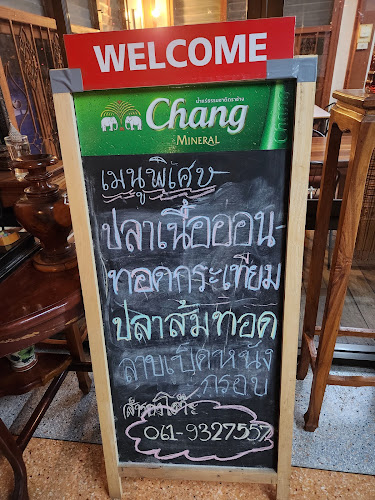 WELCOME
น้ำแร่ธรรมชาติตราช้าง
Chang
MINERAL
เมนูพิเศษ
ปลาเนื้ออ่อน-
ทอดกระเทียม
ปลาส้มทอด
ลาบเป็ดหนัง
กรอบ
061-9327557